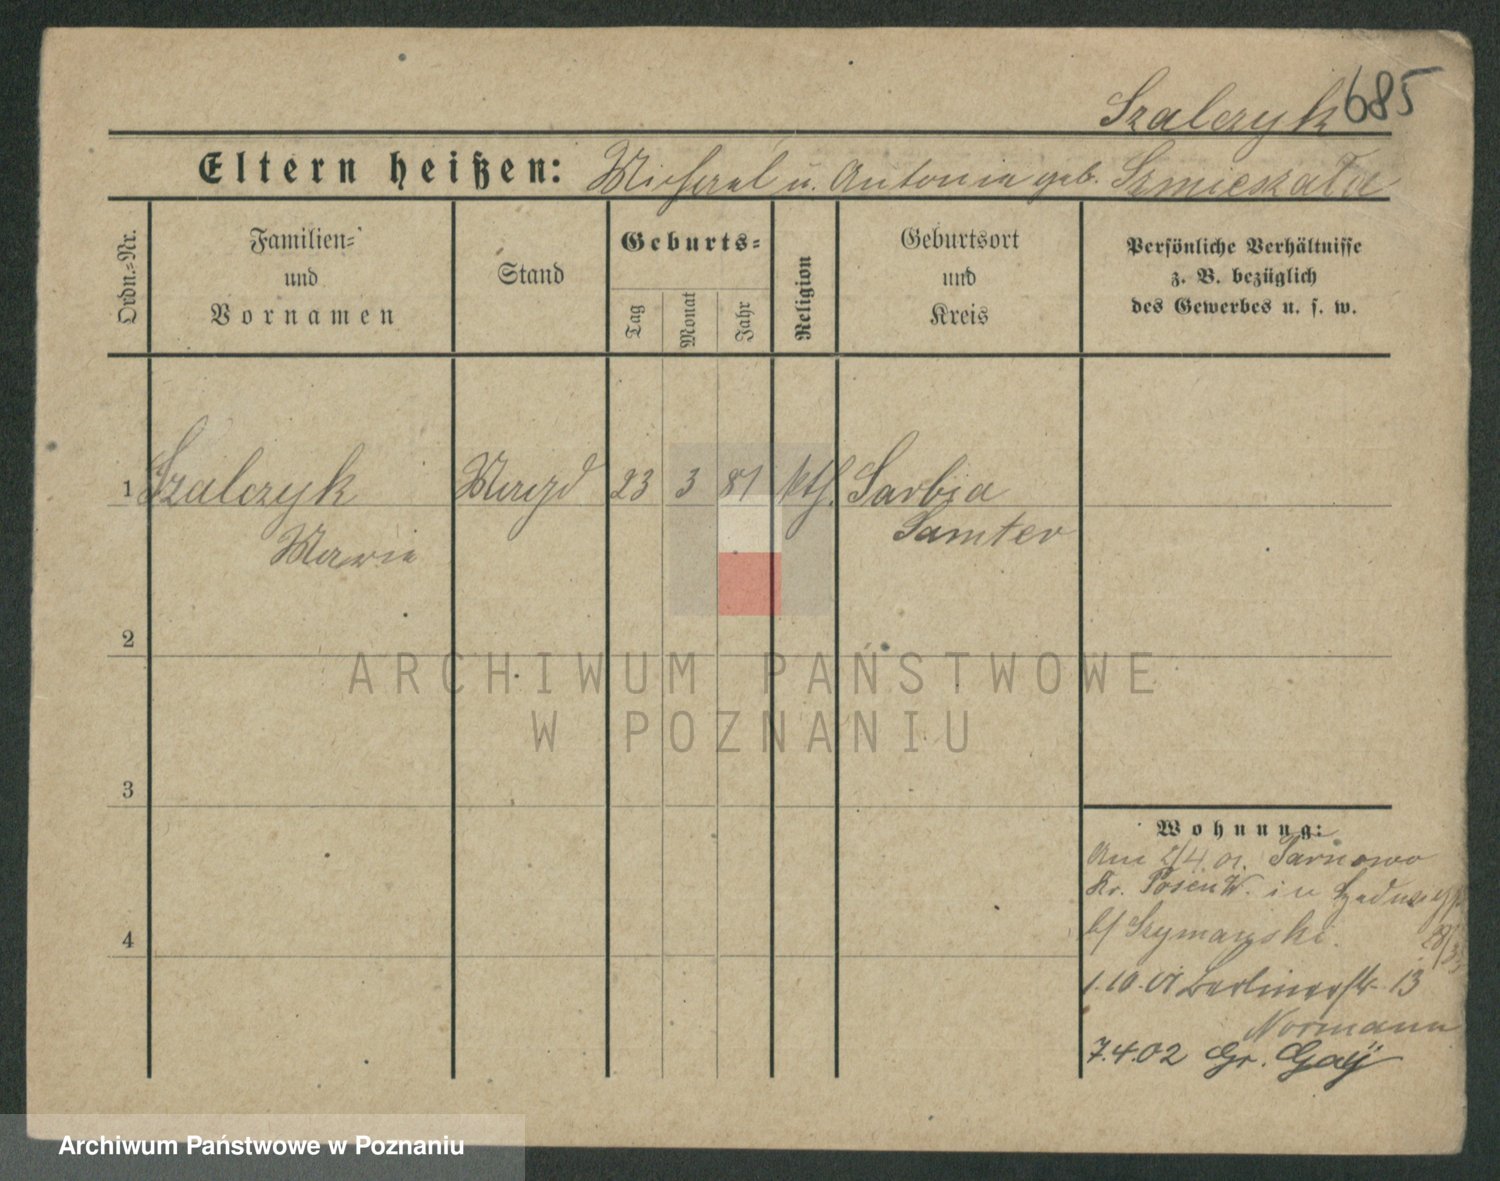 Szalczyk 685
Eltern heißen: Michael u. Antonia geb. Szmieszała
Ordn.-Nr.
Familien-
und
Vornamen
Stand
Geburts-
Tag
Monat
Jahr
Religion
Geburtsort
und
Kreis
Persönliche Verhältnisse
z. B. bezüglich
des Gewerbes u. s. w.
1 Szalczyk Magd 23 3 81 kth. Sarbia
Marie Samter
2
ARCHIWUM PAŃSTWOWE
W POZNANIU
3
Wohnung:
Am 2/4 01. Tarnowo
Kr. Posen W. in
b/ Szymanski.
4
1.10.01 Berlinerstr. 13
Normann
7.4.02 Gr. Gay
Archiwum Państwowe w Poznaniu